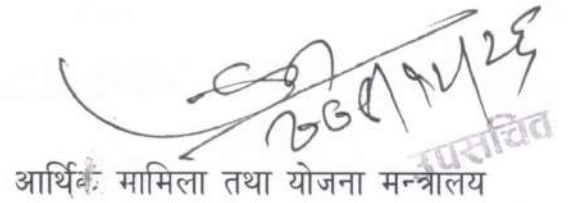 उपसचिव
आर्थिक मामिला तथा योजना मन्त्रालय